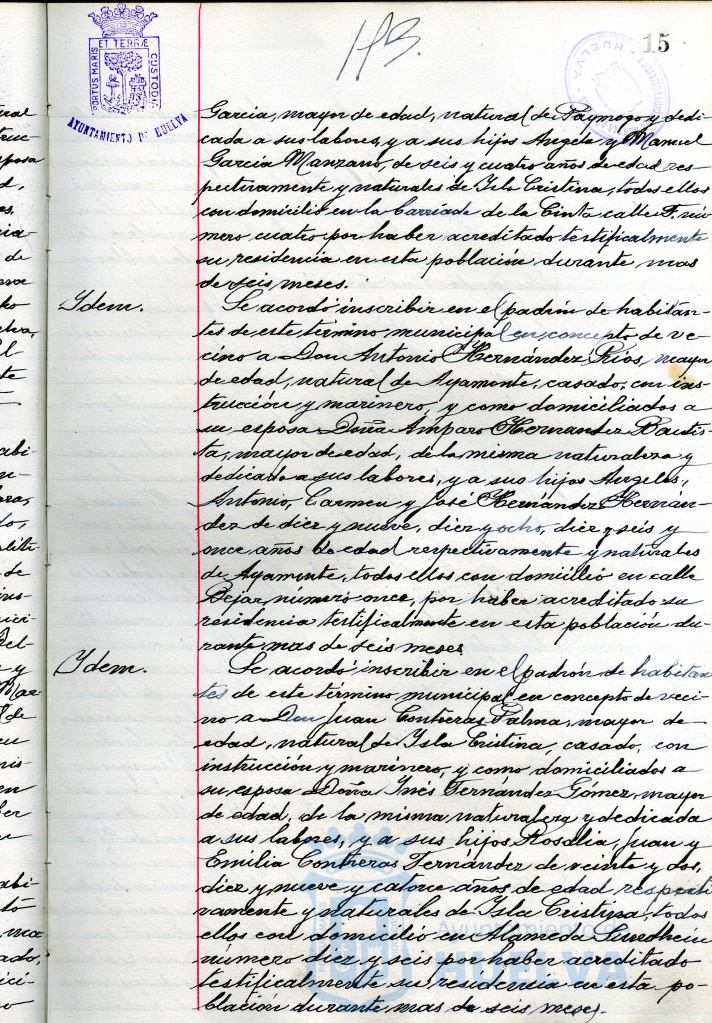 PORTUS MARIS ET TERRÆ CUSTODIA
AYUNTAMIENTO DE HUELVA
HUELVA
15
Garcia, mayor de edad, natural de Paymogo y dedi-
cada a sus labores, y a sus hijos Angela y Manuel
Garcia Manzano, de seis y cuatro años de edad res-
pectivamente y naturales de Isla Cristina, todos ellos
con domicilio en la barriada de la Cinta calle F. nú-
mero cuatro por haber acreditado testificalmente
su residencia en esta población durante mas
de seis meses.
Idem.
Se acordó inscribir en el padrón de habitan-
tes de este término municipal en concepto de ve-
cino a Don Antonio Hernández Rios, mayor
de edad, natural de Ayamonte, casado, con ins-
trucción y marinero, y como domiciliados a
su esposa Doña Amparo Hernandez Bautis-
ta, mayor de edad, de la misma naturaleza y
dedicada a sus labores, y a sus hijos Angeles,
Antonio, Carmen y José Hernández Hernán-
dez de diez y nueve, diez y ocho, diez y seis y
once años de edad respectivamente y naturales
de Ayamonte, todos ellos con domicilio en calle
Bejar número once, por haber acreditado su
residencia testificalmente en esta población du-
rante mas de seis meses
Idem.
Se acordó inscribir en el padrón de habitan-
tes de este término municipal en concepto de veci-
no a Don Juan Contreras Palma, mayor de
edad, natural de Isla Cristina, casado, con
instrucción y marinero, y como domiciliados a
su esposa Doña Inés Fernandez Gómez, mayor
de edad, de la misma naturaleza y dedicada
a sus labores, y a sus hijos Rosalia, Juan y
Emilia Contreras Fernández de veinte y dos,
diez y nueve y catorce años de edad respecti-
vamente y naturales de Isla Cristina, todos
ellos con domicilio en Alameda Sundheim
número diez y seis por haber acreditado
testificalmente su residencia en esta po-
blación durante mas de seis meses.
Ayuntamiento de
HUELVA